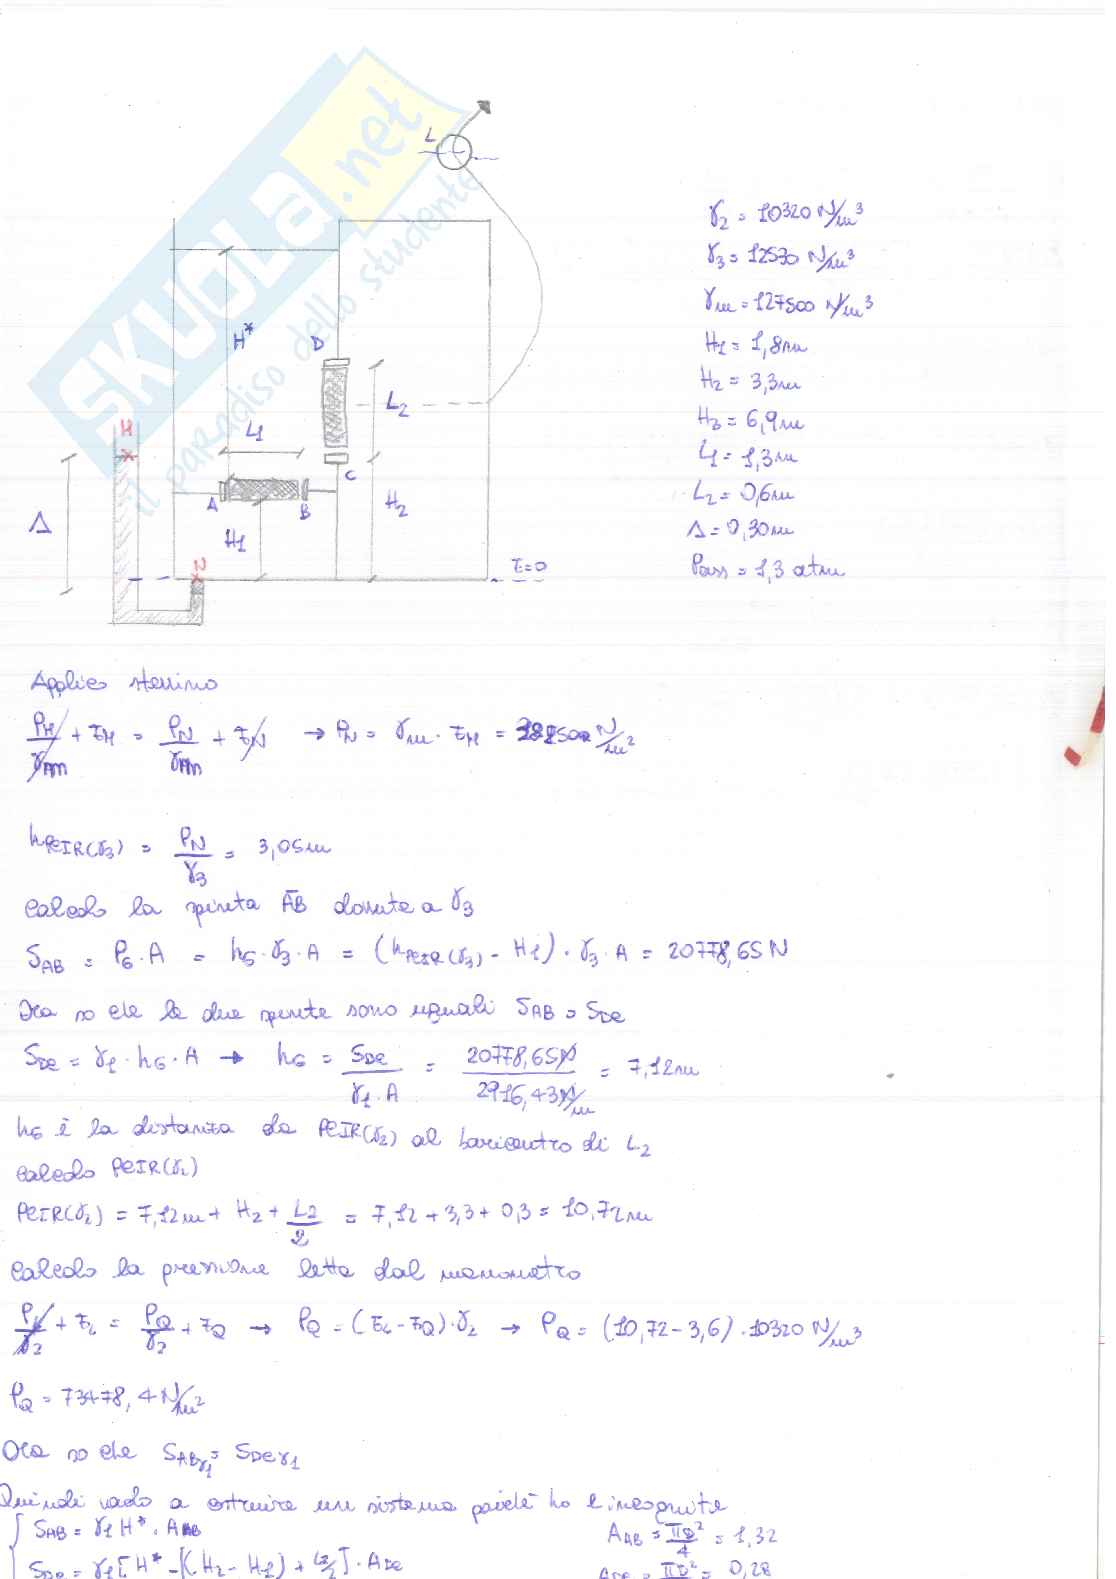 SKUOLA.net
il paradiso dello studente
L
H*
D
L1
L2
H
C
A
B
H2
Δ
H1
N
z=0
γ2 = 10320 N/m³
γ3 = 12530 N/m³
γm = 127500 N/m³
H1 = 1,8m
H2 = 3,3m
H3 = 6,9m
L1 = 1,3m
L2 = 0,6m
Δ = 0,30m
Pass = 1,3 atm
Applico stevino
PH/γm + zH = PN/γm + zN → PN = γm · zH = N/m²
hPCIR(γ3) = PN/γ3 = 3,05m
calcolo la spinta AB dovuta a γ3
SAB = PG·A = hG·γ3·A = (hPCIR(γ3) - H1)·γ3·A = 20778,65N
Ora so che le due spinte sono uguali SAB = SDC
SDC = γ1·hG·A → hG = SDC/γ1·A = 20778,65N/2916,43N/m = 7,12m
hG è la distanza da PCIR(γ2) al baricentro di L2
calcolo PCIR(γ2)
PCIR(γ2) = 7,12m + H2 + L2/2 = 7,12 + 3,3 + 0,3 = 10,72m
calcolo la pressione letta dal manometro
PL/γ2 + zL = PQ/γ2 + zQ → PQ = (zL - zQ)·γ2 → PQ = (10,72 - 3,6)·10320 N/m³
PQ = 73478,4 N/m²
Ora so che SABγ1 = SDCγ1
Quindi vado a costruire un sistema poiché ho 2 incognite
SAB = γ1 H*·AAB
AAB = πD²/4 = 1,32
SDC = γ1[H* -[(H2 - H1) + L2/2]·ADC
ADC = πD² = 0,28